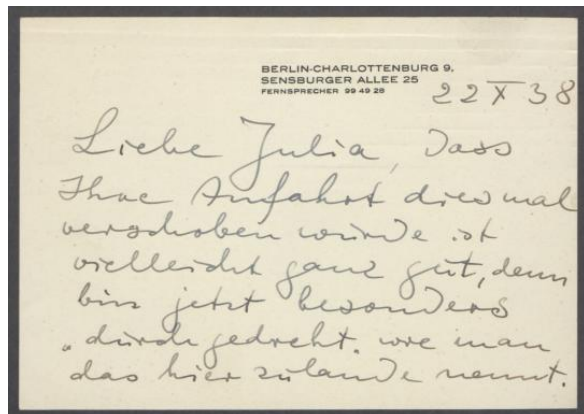 BERLIN-CHARLOTTENBURG 9,
SENSBURGER ALLEE 25
FERNSPRECHER 99 49 28
22 X 38
Liebe Julia, Dass
Ihre Anfahrt diesmal
verschoben wurde ist
vielleicht ganz gut, denn
bin jetzt besonders
„durchgedreht. wie man
das hierzulande nennt.